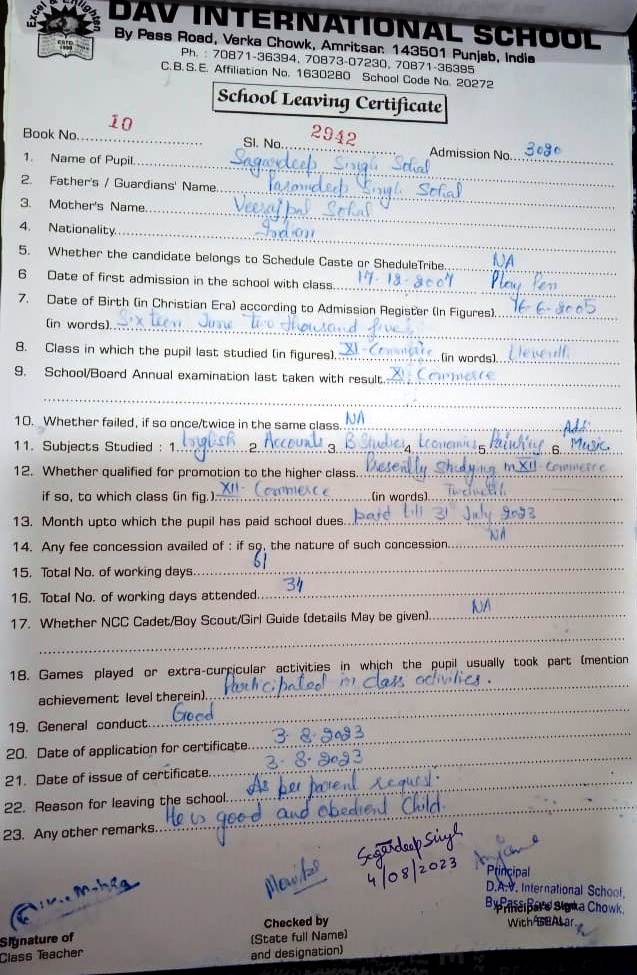 Excel & Enlighten
ESTD. 1999
DAV INTERNATIONAL SCHOOL
By Pass Road, Verka Chowk, Amritsar. 143501 Punjab, India
Ph. : 70871-36394, 70873-07230, 70871-36395
C.B.S.E. Affiliation No. 1630280 School Code No. 20272
School Leaving Certificate
Book No. 10 Sl. No. 2942 Admission No. 3090
1. Name of Pupil Sagardeep Singh Sohal
2. Father's / Guardians' Name Paramdeep Singh Sohal
3. Mother's Name Veerajpal Sohal
4. Nationality Indian
5. Whether the candidate belongs to Schedule Caste or SheduleTribe NA
6 Date of first admission in the school with class 17-12-2007 Play Pen
7. Date of Birth (in Christian Era) according to Admission Register (In Figures) 16-6-2005
(in words) Sixteen June two thousand five
8. Class in which the pupil last studied (in figures) XI-Commerce (in words) Eleventh
9. School/Board Annual examination last taken with result XI Commerce
10. Whether failed, if so once/twice in the same class NA
Adl:
11. Subjects Studied : 1. English 2. Accounts 3. B Studies 4. Economics 5. Painting 6. Music
12. Whether qualified for promotion to the higher class Presently studying in XII-Commerce
if so, to which class (in fig.) XII-Commerce (in words) Twelveth
13. Month upto which the pupil has paid school dues paid till 31 July 2023
14. Any fee concession availed of : if so, the nature of such concession NA
15. Total No. of working days 61
16. Total No. of working days attended 34
17. Whether NCC Cadet/Boy Scout/Girl Guide (details May be given) NA
18. Games played or extra-curricular activities in which the pupil usually took part (mention
achievement level therein) Participated in class activities.
19. General conduct Good
20. Date of application for certificate 3.8.2023
21. Date of issue of certificate 3.8.2023
22. Reason for leaving the school As per parent request.
23. Any other remarks He is good and obedient Child.
Sagardeep Singh
4/08/2023
Principal
D.A.V. International School,
Principal's Sign
With SEAL
Signature of
Class Teacher
Checked by
(State full Name)
and designation)